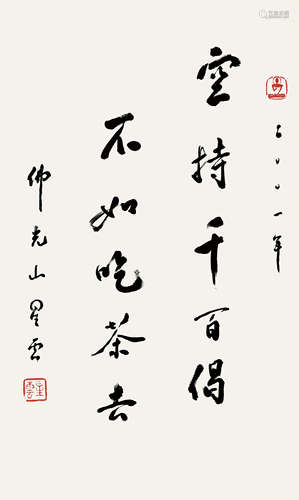 二〇〇一年
空持千百偈
不如吃茶去
佛光山星雲